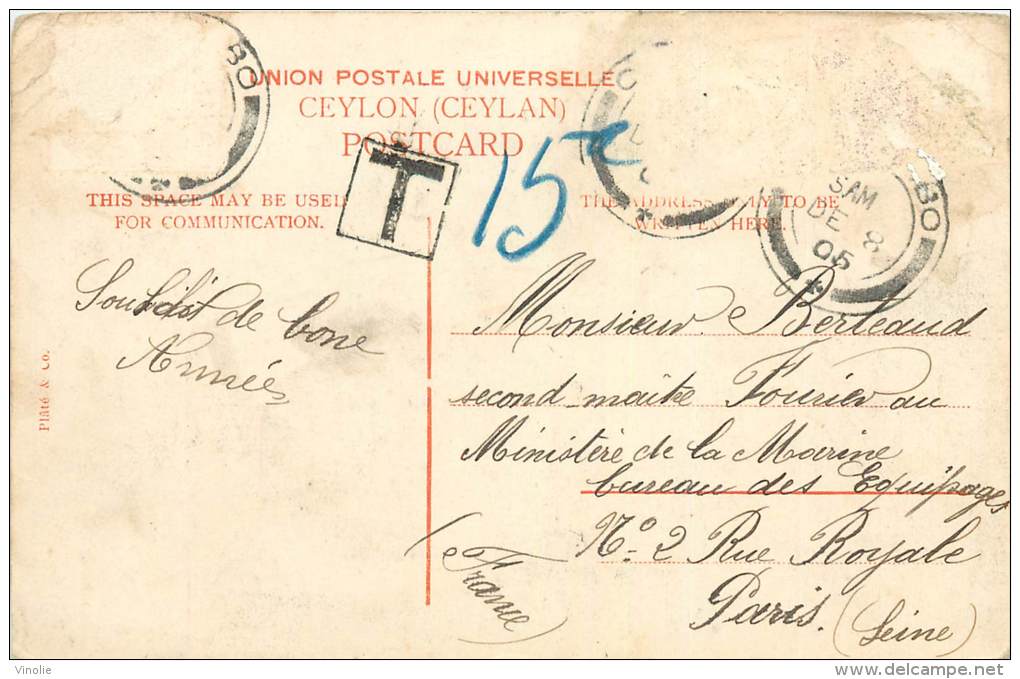 UNION POSTALE UNIVERSELLE
CEYLON (CEYLAN)
POSTCARD
T
15c
BO
BO
5AM
DE 8
05
THIS SPACE MAY BE USED
FOR COMMUNICATION.
THE ADDRESS ONLY TO BE
WRITTEN HERE.
de bone
Année
Plâté & Co.
Monsieur Berteaud
second maitre Fourier au
Ministère de la Marine
bureau des Equipages
No 2 Rue Royale
Paris. (Seine)
(France)
Vinolie
delcampe.net